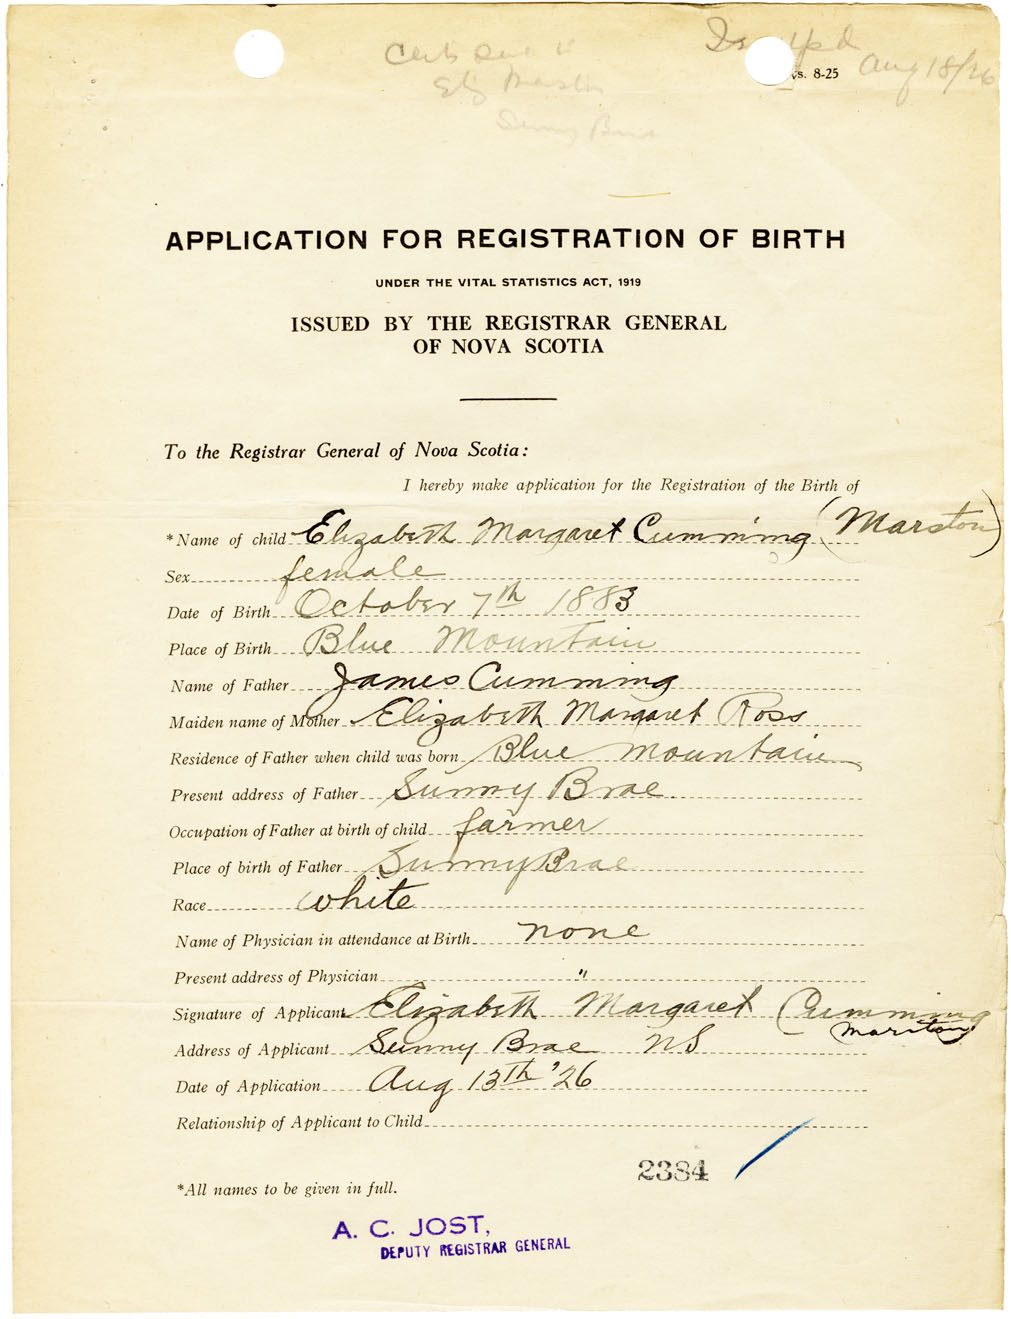 Aug 18/26
vs. 8-25
Sunny Brae
APPLICATION FOR REGISTRATION OF BIRTH
UNDER THE VITAL STATISTICS ACT, 1919
ISSUED BY THE REGISTRAR GENERAL
OF NOVA SCOTIA
To the Registrar General of Nova Scotia:
I hereby make application for the Registration of the Birth of
*Name of child Elizabeth Margaret Cumming (Marston)
Sex female
Date of Birth October 7th 1883
Place of Birth Blue Mountain
Name of Father James Cumming
Maiden name of Mother Elizabeth Margaret Ross
Residence of Father when child was born Blue Mountain
Present address of Father Sunny Brae.
Occupation of Father at birth of child farmer
Place of birth of Father Sunny Brae
Race white
Name of Physician in attendance at Birth none
Present address of Physician "
Signature of Applicant Elizabeth Margaret Cumming
(Marston)
Address of Applicant Sunny Brae NS
Date of Application Aug 13th '26
Relationship of Applicant to Child
2384
*All names to be given in full.
A. C. JOST,
DEPUTY REGISTRAR GENERAL